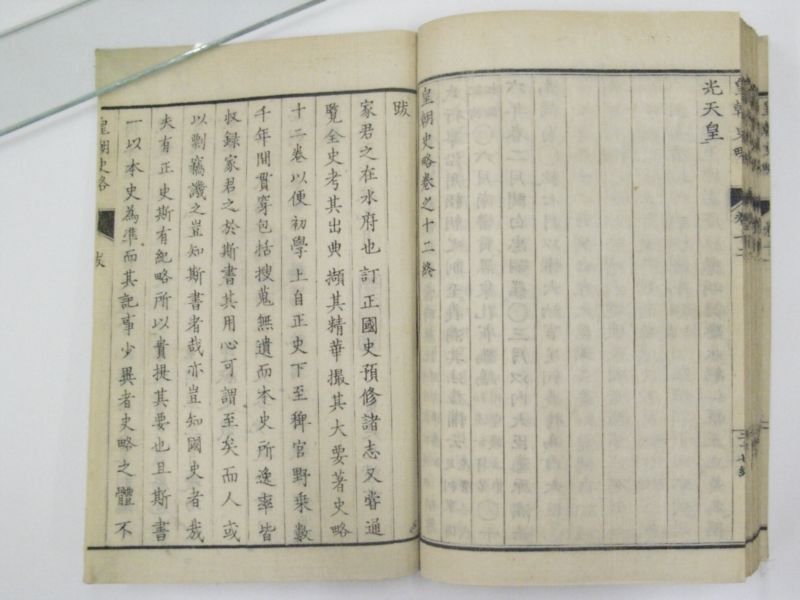 光天皇
皇朝史略卷之十二終
跋
家君之在水府也訂正國史預修諸志又嘗通
覽全史考其出典擷其精華撮其大要著史略
十二卷以便初學上自正史下至稗官野乘數
千年間貫穿包括搜蒐無遺而本史所逸率皆
収録家君之於斯書其用心可謂至矣而人或
以剽竊譏之豈知斯書者哉亦豈知國史者哉
夫有正史斯有紀略所以貴提其要也且斯書
一以本史為準而其記事少異者史略之體不
皇朝史略
跋